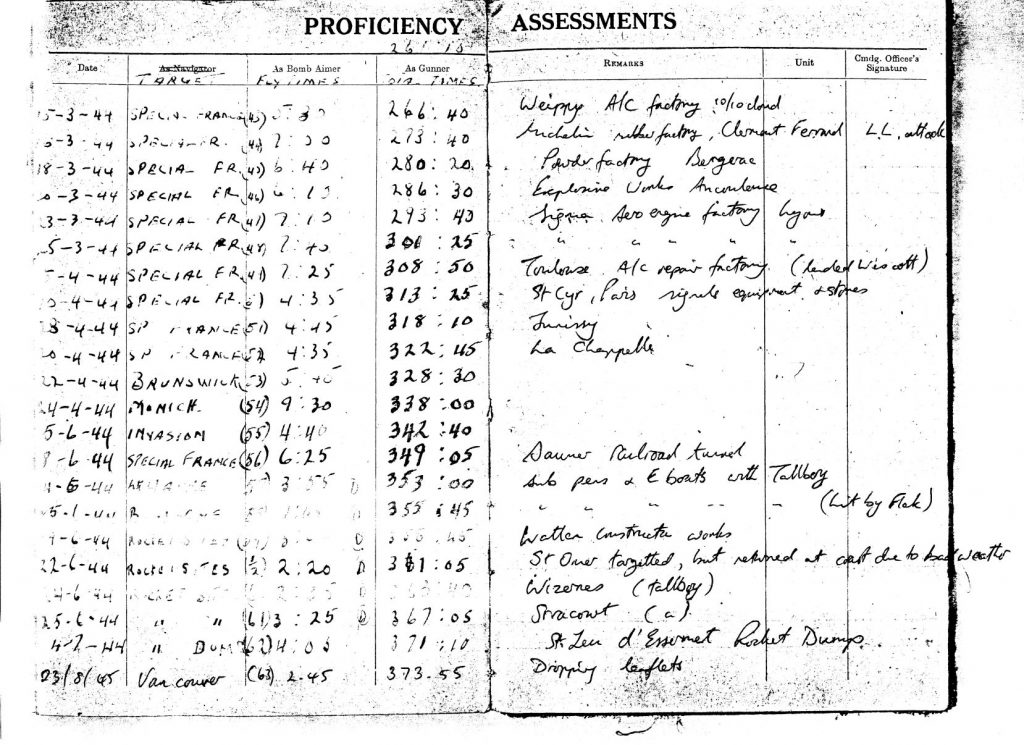 PROFICIENCY ASSESSMENTS
Date As Navigator As Bomb Aimer As Gunner REMARKS Unit Cmdg. Officer's Signature
TARGET FLY TIMES TIMES
5-3-44 SPECIAL FRANCE 5:30 266:40 A/C factory 10/10 cloud
-3-44 SPECIAL FR. 7:00 273:40 Michelin rubber factory, Clermont Ferrand L.L. attack
18-3-44 SPECIAL FR. 6:40 280:20 Powder factory Bergerac
0-3-44 SPECIAL FR. (46) 6:10 286:30 Explosive Works
3-3-44 SPECIAL FR. 7:10 293:40 Aero engine factory Lyons
5-3-44 SPECIAL FR. 7:40 300:25 " " " " "
-4-44 SPECIAL FR. 7:25 308:50 Toulouse A/C repair factory (landed Wescott)
0-4-44 SPECIAL FR. 4:35 313:25 St Cyr, Paris signals equipment & stores
8-4-44 SP FRANCE (51) 4:45 318:10 Juvissy
0-4-44 SP FRANCE (52) 4:35 322:45 La Chappelle
22-4-44 BRUNSWICK (53) 5:45 328:30
24-4-44 MUNICH. (54) 9:30 338:00
5-6-44 INVASION (55) 4:40 342:40
8-6-44 SPECIAL FRANCE (56) 6:25 349:05 Railroad tunnel
-6-44 3:55 353:00 Sub pens & E boats with Tallboy
355:45 " " " " " (hit by Flak)
-6-44 Watten works
22-6-44 ROCKET SITES 2:20 361:05 St Omer targetted, but returned at coast due to bad weather
-6-44 Wizernes (tallboy)
25-6-44 " " (61) 3:25 367:05 (a)
4-7-44 " DUMP (62) 4:05 371:10 St Leu d'Esserent Rocket Dumps
23/8/45 Vancouver (63) 2.45 373.55 Dropping leaflets